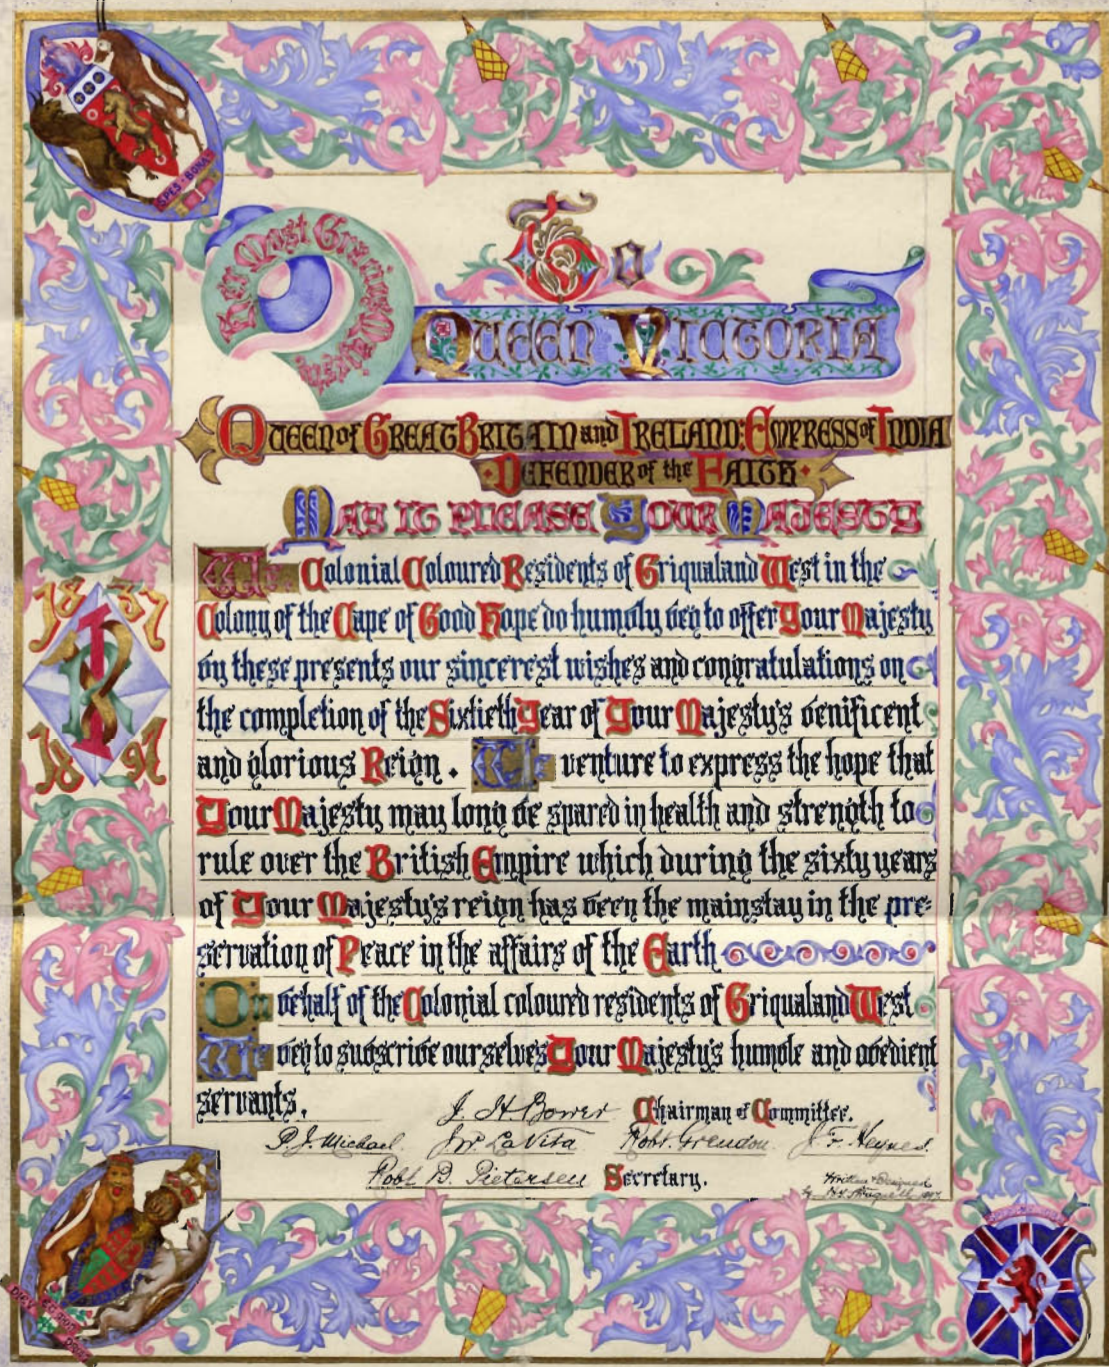 SPES BONA
To
Her Most Gracious Majesty
QUEEN VICTORIA
QUEEN of GREAT BRITAIN and IRELAND: EMPRESS of INDIA
DEFENDER of the FAITH
MAY IT PLEASE YOUR MAJESTY
We Colonial Coloured Residents of Griqualand West in the
Colony of the Cape of Good Hope do humbly beg to offer Your Majesty
by these presents our sincerest wishes and congratulations on
the completion of the Sixtieth Year of Your Majesty's benificent
and glorious Reign. We venture to express the hope that
Your Majesty may long be spared in health and strength to
rule over the British Empire which during the sixty years
of Your Majesty's reign has been the mainstay in the pre-
servation of Peace in the affairs of the Earth
On behalf of the Colonial coloured residents of Griqualand West
We beg to subscribe ourselves Your Majesty's humble and obedient
servants,
J. H. Bower Chairman of Committee.
P. J. Michael J. W. La Vita Robt. Grendon. J. F. Heynes.
Robt B. Pietersen Secretary.
Written & Designed
by 1897
1837
VRI
1897
DIEV ET MON DROIT